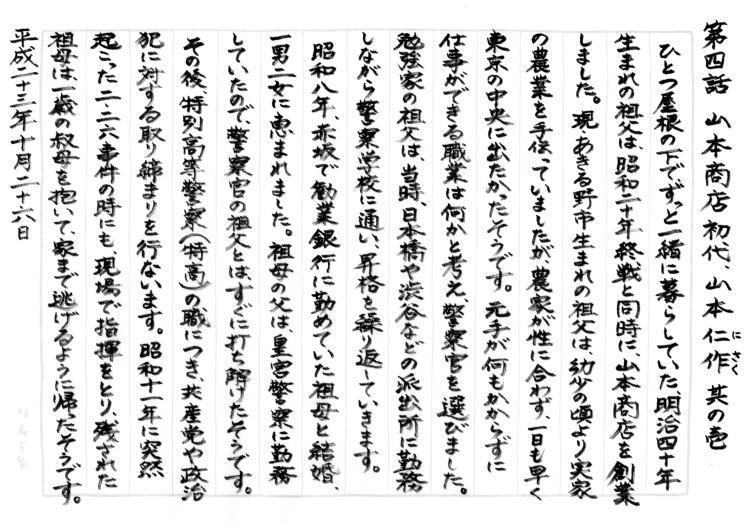 第四話 山本商店初代、山本仁作 其の壱
にさく
ひとつ屋根の下でずっと一緒に暮らしていた、明治四十年
生まれの祖父は、昭和二十年終戦と同時に、山本商店を創業
しました。現・あきる野市生まれの祖父は、幼少の頃より実家
の農業を手伝っていましたが、農家が性に合わず、一日も早く
東京の中央に出たかったそうです。元手が何もかからずに
仕事ができる職業は何かと考え、警察官を選びました。
勉強家の祖父は、当時、日本橋や渋谷などの派出所に勤務
しながら警察学校に通い、昇格を繰り返していきます。
昭和八年、赤坂で勧業銀行に勤めていた祖母と結婚、
一男二女に恵まれました。祖母の父は、皇宮警察に勤務
していたので、警察官の祖父とはすぐに打ち解けたそうです。
その後、特別高等警察(特高)の職につき、共産党や政治
犯に対する取り締まりを行ないます。昭和十一年に突然
起こった二・二六事件の時にも、現場で指揮をとり、残された
祖母は、一歳の叔母を抱いて、家まで逃げるように帰ったそうです。
平成二十三年十月二十六日